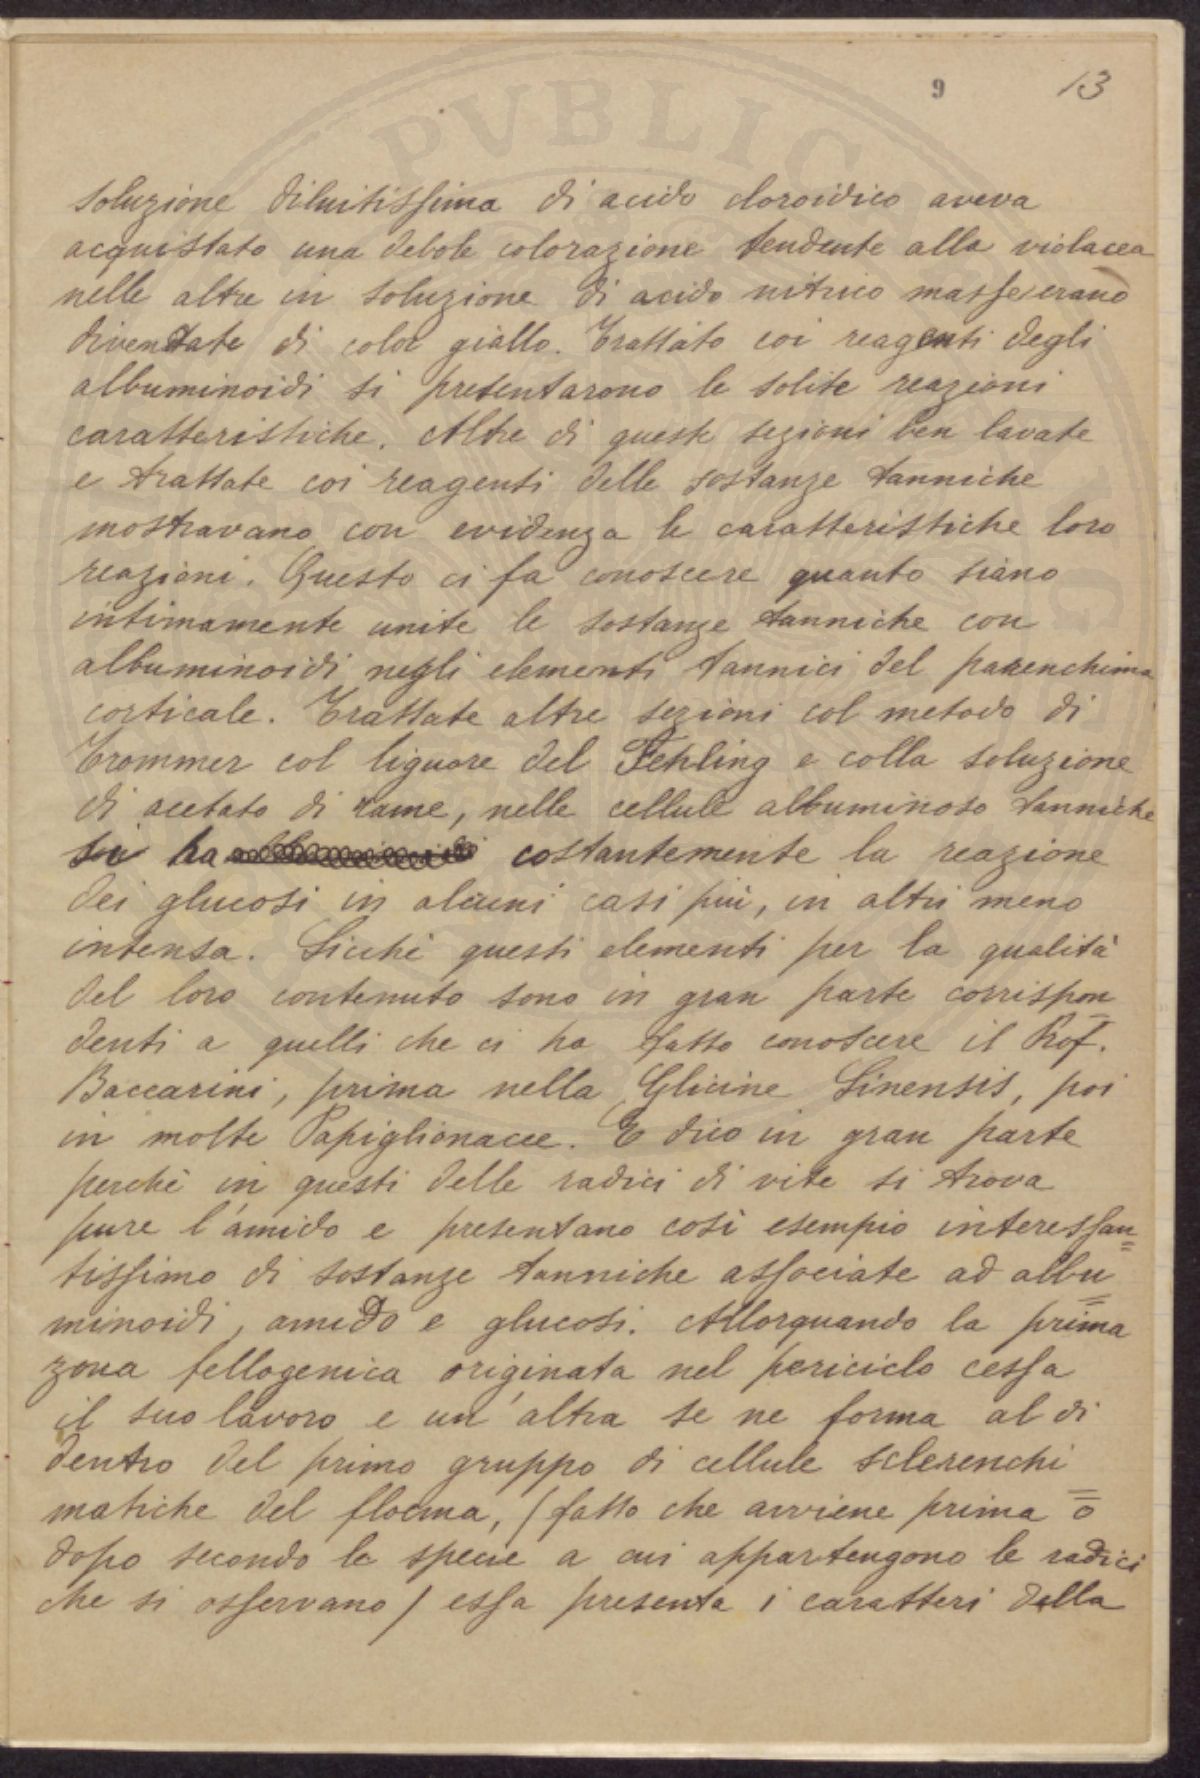 9 13
soluzione diluitissima di acido cloroidico aveva
acquistato una debole colorazione tendente alla violacea
nelle altre in soluzione di acido nitrico masse erano
diventate di color giallo. Trattato coi reagenti degli
albuminoidi si presentarono le solite reazioni
caratteristiche. Altre di queste sezioni ben lavate
e trattate coi reagenti delle sostanze tanniche
mostravano con evidenza le caratteristiche loro
reazioni. Questo ci fa conoscere quanto siano
intimamente unite le sostanze tanniche con
albuminoidi negli elementi tannici del parenchima
corticale. Trattate altre sezioni col metodo di
Trommer col liquore del Fehling e colla soluzione
di acetato di rame, nelle cellule albuminoso tanniche
si ha costantemente la reazione
dei glucosi in alcuni casi più, in altri meno
intensa. Sicchè questi elementi per la qualità
del loro contenuto sono in gran parte corrispon=
denti a quelli che ci ha fatto conoscere il Prof.
Baccarini, prima nella Glicine Sinensis, poi
in molte Papiglionacee. E dico in gran parte
perchè in questi delle radici di vite si trova
pure l'amido e presentano così esempio interessan=
tissimo di sostanze tanniche associate ad albu=
minoidi, amido e glucosi. Allorquando la prima
zona fellogenica originata nel periciclo cessa
il suo lavoro e un'altra se ne forma al di
dentro del primo gruppo di cellule sclerenchi=
matiche del floema, (fatto che avviene prima o
dopo secondo le specie a cui appartengono le radici
che si osservano) essa presenta i caratteri della
PVBLIC